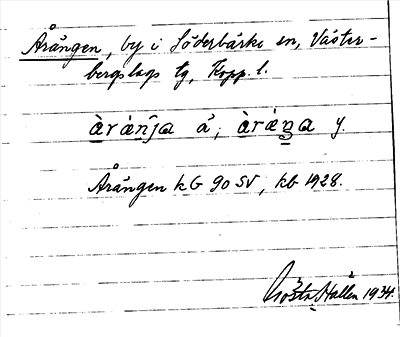 Årängen, by i Söderbärke sn, Väster-
bergslags tg, Kopp. l.
àrǽnja ä, àrǽna y.
Årängen kG 90 SV, kb 1928.
Gösta Hallén 1934.